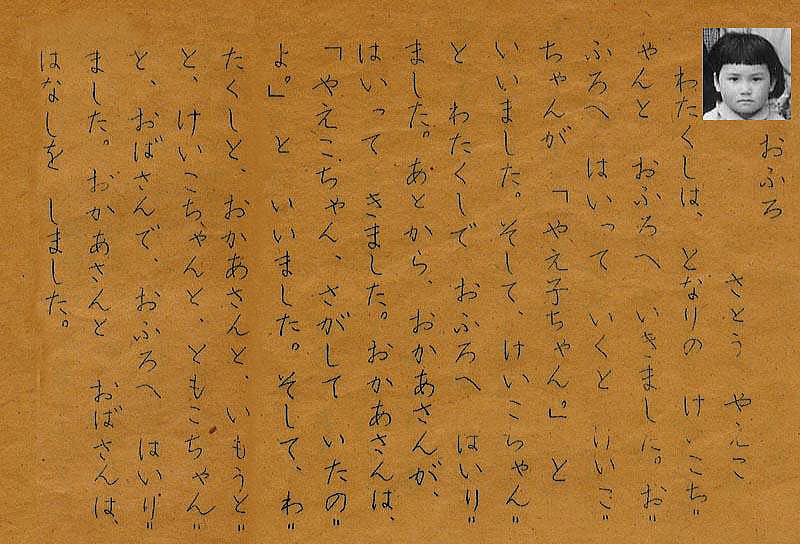 おふろ
さとう やえこ
わたくしは、 となりの けいこち〃
ゃんと おふろへ いきました。お〃
ふろへ はいって いくと けいこ〃
ちゃんが 「やえ子ちゃん。」 と
いいました。そして、けいこちゃん〃
と わたくしで おふろへ はいり〃
ました。あとから、おかあさんが、
はいって きました。おかあさんは、
「やえこちゃん、さがして いたの〃
よ。」 と いいました。そして、わ〃
たくしと、おかあさんと、いもうと〃
と、けいこちゃんと、ともこちゃん〃
と、おばさんで、おふろへ はいり〃
ました。おかあさんと おばさんは、
はなしを しました。